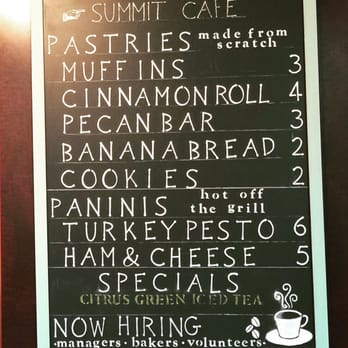 SUMMIT CAFE
PASTRIES made from scratch
MUFFINS 3
CINNAMON ROLL 4
PECAN BAR 3
BANANA BREAD 2
COOKIES 2
PANINIS hot off the grill
TURKEY PESTO 6
HAM & CHEESE 5
SPECIALS
CITRUS GREEN ICED TEA
NOW HIRING
·managers·bakers·volunteers·